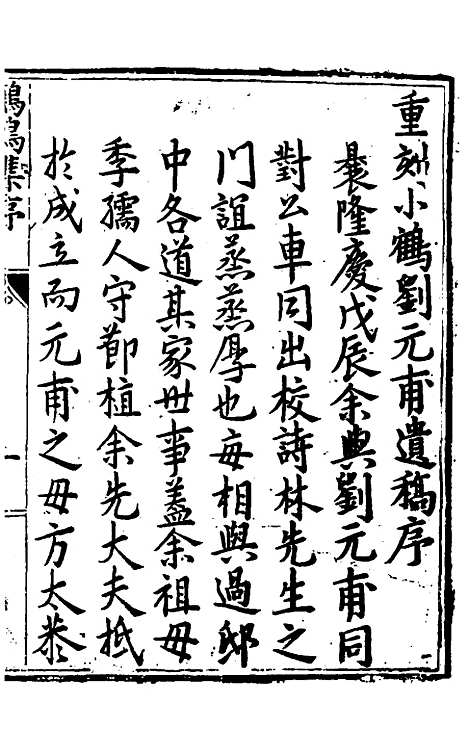 重刻小鶴劉元甫遺稿序
曩隆慶戊辰余與劉元甫同
對公車同出校詩林先生之
門誼蒸蒸厚也每相與過邸
中各道其家世事蓋余祖母
季孺人守節植余先大夫抵
於成立而元甫之母方太恭
集序